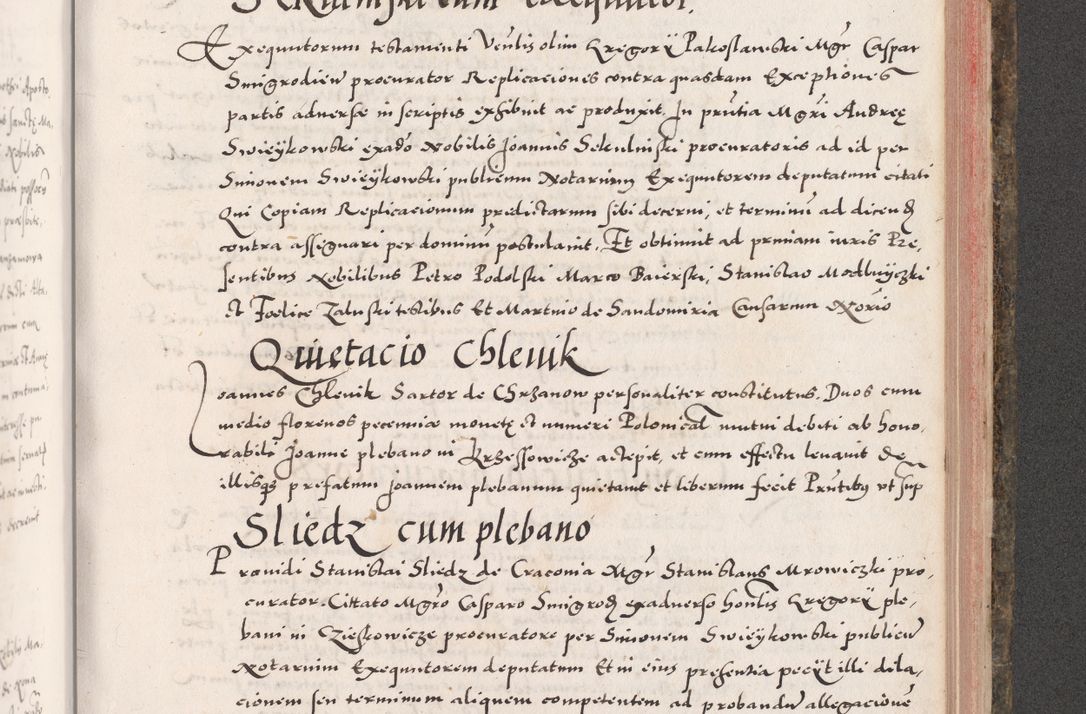 Exequutorum testamenti Venlis olim Gregorÿ Pakoslawski Mgr Caspar
Smigrodień procurator Replicaciones contra quasdam Exceptiones
partis aduersę in scriptis exhibuit ac produxit. In prntia Mgri Andreę
Swieÿkowski exado Nobilis Joannis Sekulniski procuratoris ad id per
Simonem Swieÿkowski publicum Notarium Exequutorem deputatum citati
Qui Copiam Replicacionum predictarum sibi decerni, et terminū ad dicend
contra assignari per dominū postulauit. Et obtinuit ad prmiam iuris Pre,
sentibus Nobilibus Petro Podolski Marco Baierski, Stanislao Modlniÿczki
et Foelice Zaluski testibus Et Martino de Sandomiria Causarum Notrio
Quietacio Chlewik
Joannes Chlewik Sartor de Chrzanow personaliter constitutus. Duos cum
medio florenos pecuniæ monetę et numeri Polonical mutui debiti ab hono,
rabili Joanne plebano in Krzessowicze accepit, et cum effectu leuauit De
illisqz prefatum Joannem plebanum quietauit et liberum fecit Prntibus vt sup
Sliedz cum plebano
Prouidi Stanislai Sliedz de Cracouia Mgr Stanislaus Mrowiczki pro,
curator. Cittato Mgro Casparo Smigrod exaduerso honlis Gregorÿ ple,
bani in Czieskowicze procuratore per Simonem Swieÿkowski publicū
Notarium Exequutorem deputatum Et in eius presentia pecÿt illi dila,
cionem seu terminum aliquem competentem ad probandū allegacione